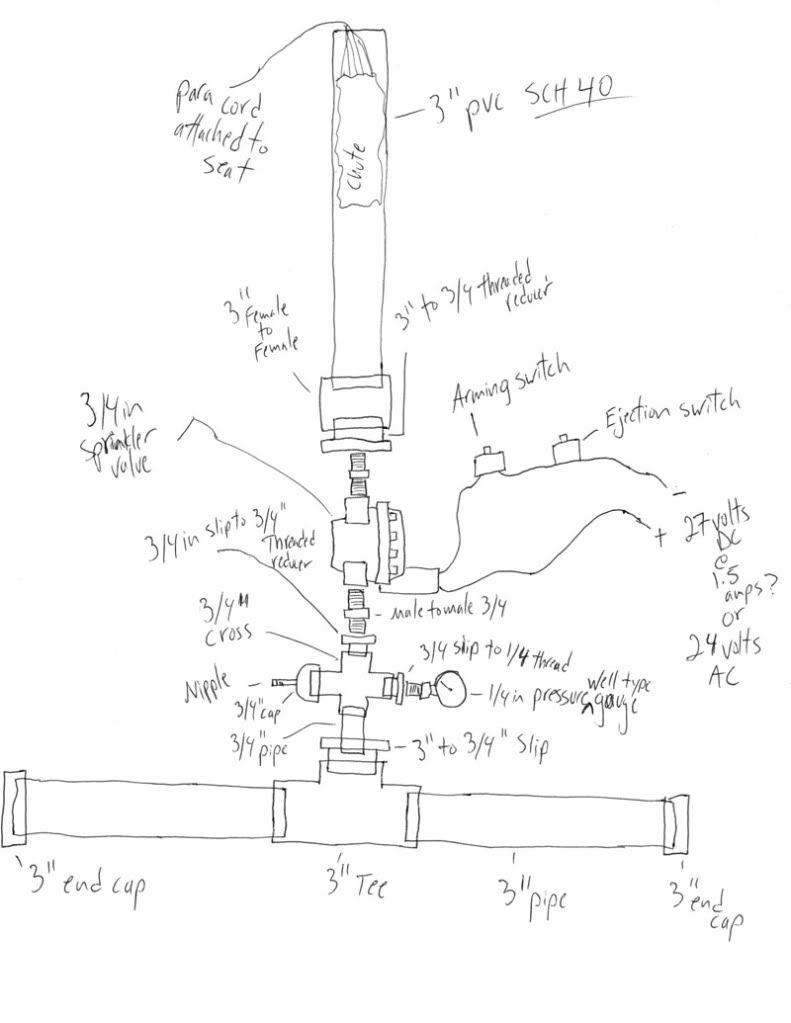 Para cord
attached to
seat
3" pvc SCH 40
chute
3"
Female
to
Female
3" to 3/4 threaded
reducer
3/4 in
sprinkler
valve
Arming switch
Ejection switch
3/4 in slip to 3/4"
Threaded
reducer
-
+ 27 volts
DC
@
1.5
amps?
or
24 volts
AC
male to male 3/4
3/4"
cross
3/4 slip to 1/4 thread
Nipple
3/4" cap
1/4 in pressure well type gauge
3/4" pipe
3" to 3/4" slip
3" end cap
3" Tee
3" pipe
3"
end
cap